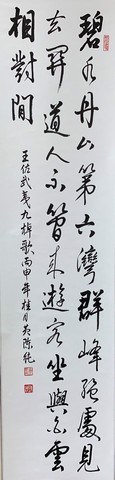 碧水丹山第六灣群峰絕處見
玄關道人不管來遊客坐與白雲
相對閒
王佐武夷九棹歌丙申年桂月陳純